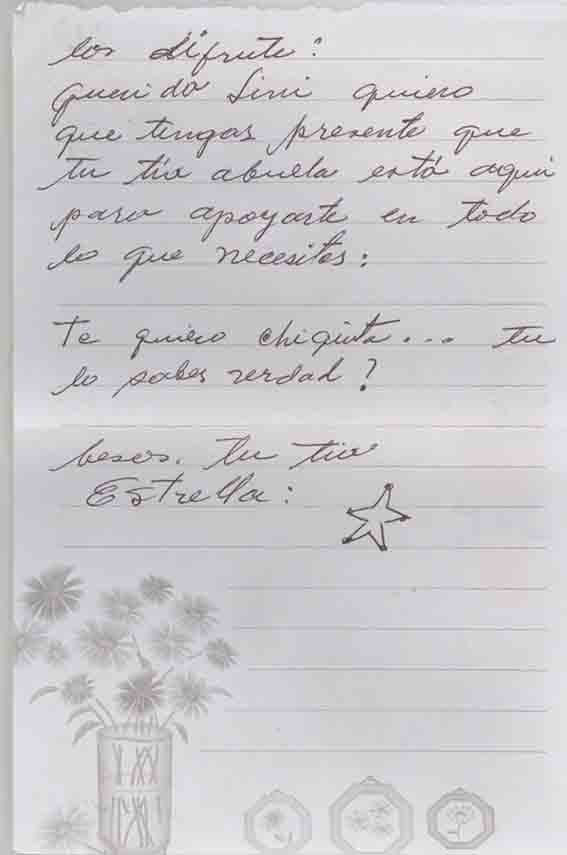 los difrute:
Querida Sini quiero
que tengas presente que
tu tía abuela está aquí
para apoyarte en todo
lo que necesites:
Te quiero chiquita... tu
lo sabes verdad?
besos. Tu tía
Estrella: